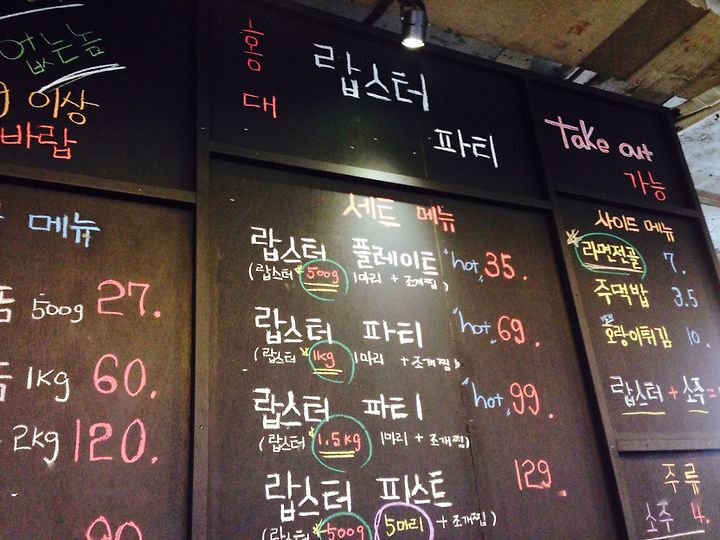 없는놈
이상
바랍
메뉴
500g 27.
1kg 60.
2kg 120.
90.
홍대
랍스터
파티
세트 메뉴
랍스터 플레이트 "hot" 35.
(랍스터 500g 1마리 + 조개찜)
랍스터 파티 "hot" 69.
(랍스터 1kg 1마리 + 조개찜)
랍스터 파티 "hot" 99.
(랍스터 1.5kg 1마리 + 조개찜)
랍스터 피스트 129.
(랍스터 500g 5마리 + 조개찜)
Take out
가능
사이드 메뉴
라면전골 7.
주먹밥 3.5
호랑이튀김 10.
랍스터 + 소주 =
주류
소주 4.